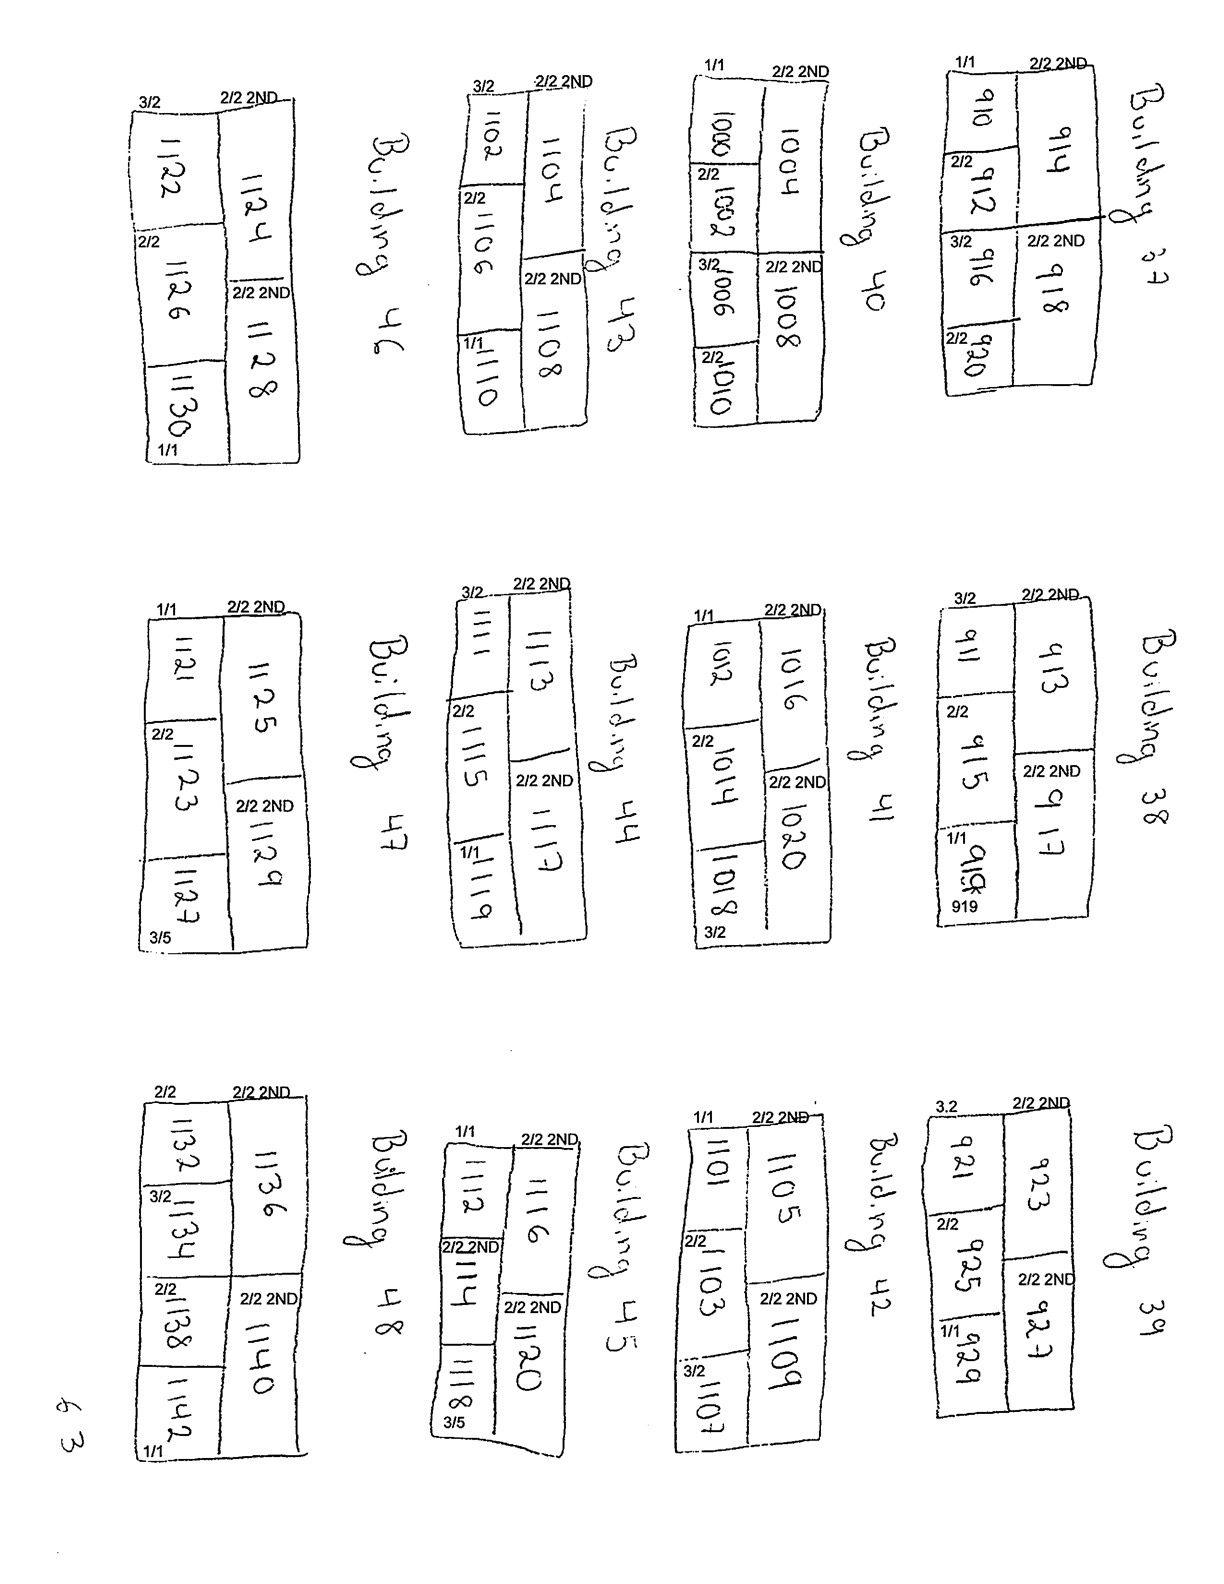 Building 37
1/1
910
2/2 2ND
914
2/2
912
3/2
916
2/2 2ND
918
2/2
920
Building 40
1/1
1000
2/2 2ND
1004
2/2
1002
3/2
1006
2/2 2ND
1008
2/2
1010
Building 43
3/2
1102
2/2 2ND
1104
2/2
1106
2/2 2ND
1108
1/1
1110
Building 46
3/2
1122
2/2 2ND
1124
2/2
1126
2/2 2ND
1128
1130
1/1
Building 38
3/2
911
2/2 2ND
913
2/2
915
2/2 2ND
917
1/1
919
919
Building 41
1/1
1012
2/2 2ND
1016
2/2
1014
2/2 2ND
1020
1018
3/2
Building 44
3/2
1111
2/2 2ND
1113
2/2
1115
2/2 2ND
1117
1/1
1119
Building 47
1/1
1121
2/2 2ND
1125
2/2
1123
2/2 2ND
1129
1127
3/5
Building 39
3.2
921
2/2 2ND
923
2/2
925
2/2 2ND
927
1/1
929
Building 42
1/1
1101
2/2 2ND
1105
2/2
1103
2/2 2ND
1109
3/2
1107
Building 45
1/1
1112
2/2 2ND
1116
2/2 2ND
1114
2/2 2ND
1120
1118
3/5
Building 48
2/2
1132
2/2 2ND
1136
3/2
1134
2/2
1138
2/2 2ND
1140
1142
1/1
63